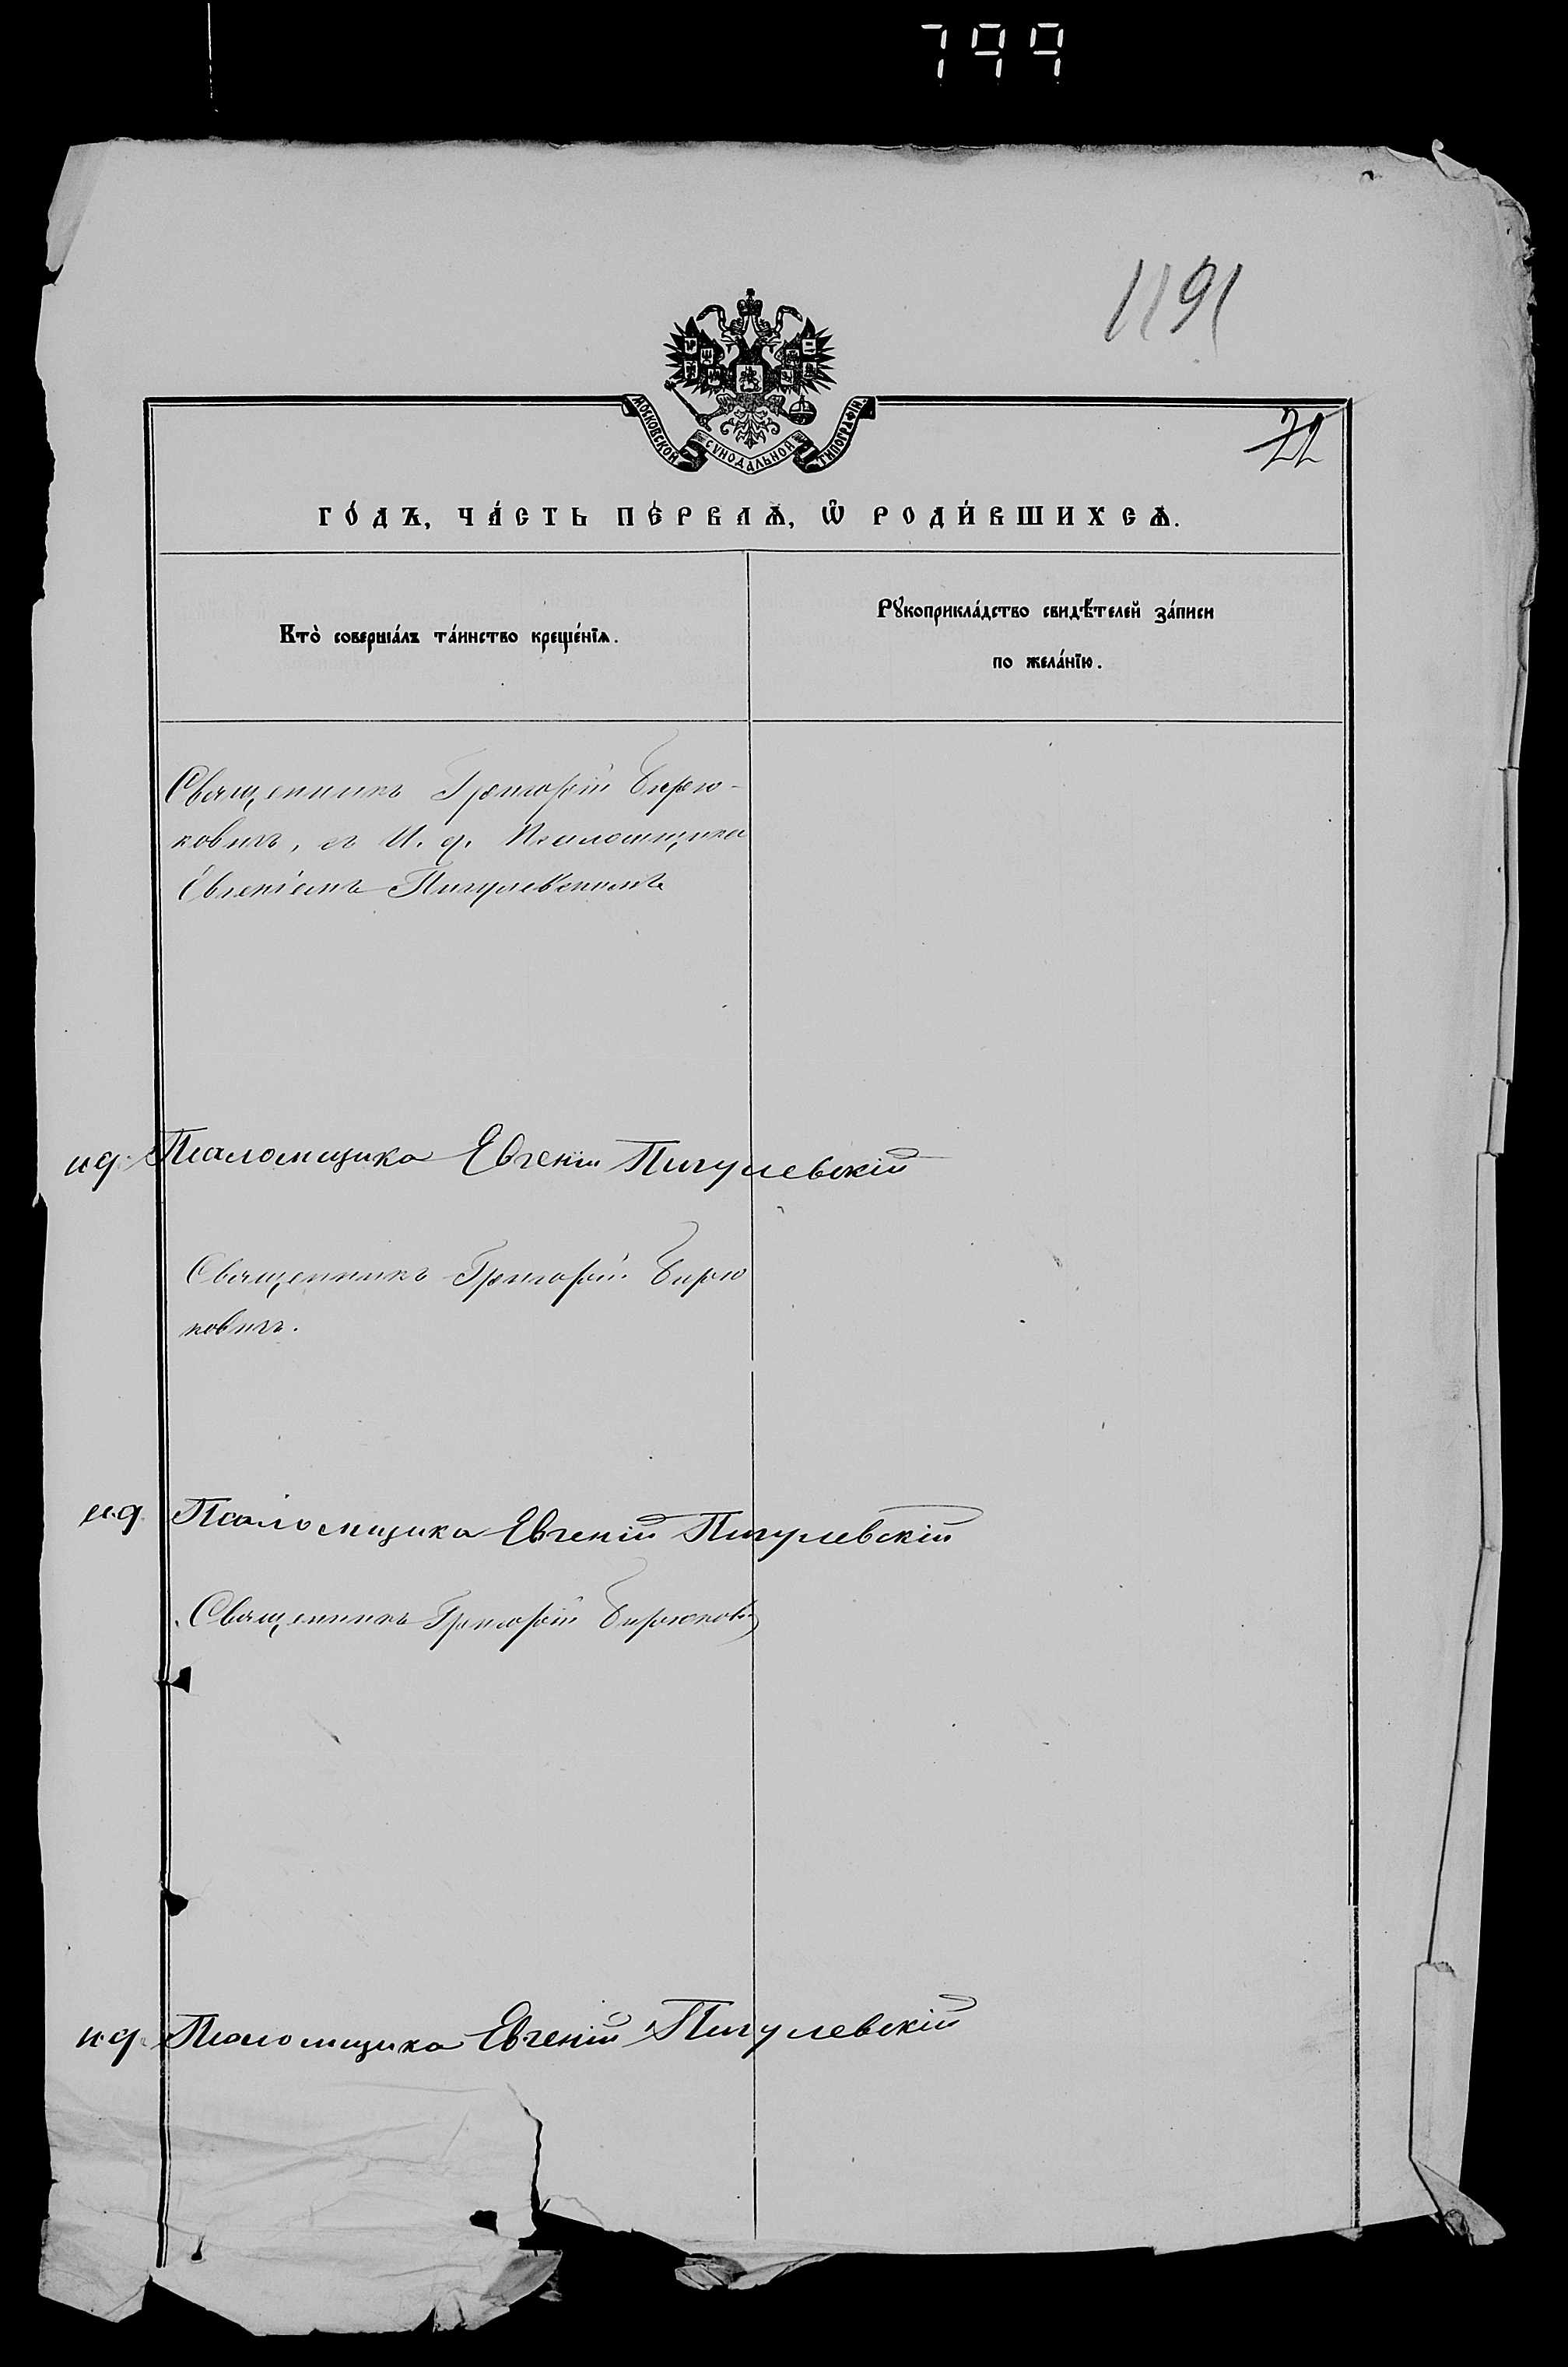 799
1191
71
МОСКОВСКОЙ СѴНОДАЛЬНОЙ ТИПОГРАФІИ.
ГО́ДЪ, ЧА́СТЬ ПЕ́РВАѦ, Ѡ҆ РОДИ́ВШИХСѦ.
Кто̀ соверша́лъ та́инство креще́нїѧ.
Рꙋкоприкла́дство свидѣ́телей за́писи
по жела́нїю.
Священникъ Григорій Бирю-
ковичъ, съ И. д. Псаломщика
Евгеніемъ Пигулевскимъ
и д. Псаломщика Евгеній Пигулевскій
Священникъ Григорій Бирю
ковичъ.
и.д. Псаломщика Евгеній Пигулевскій
Священникъ Григорій Бирюкович
и д. Псаломщика Евгеній Пигулевскій